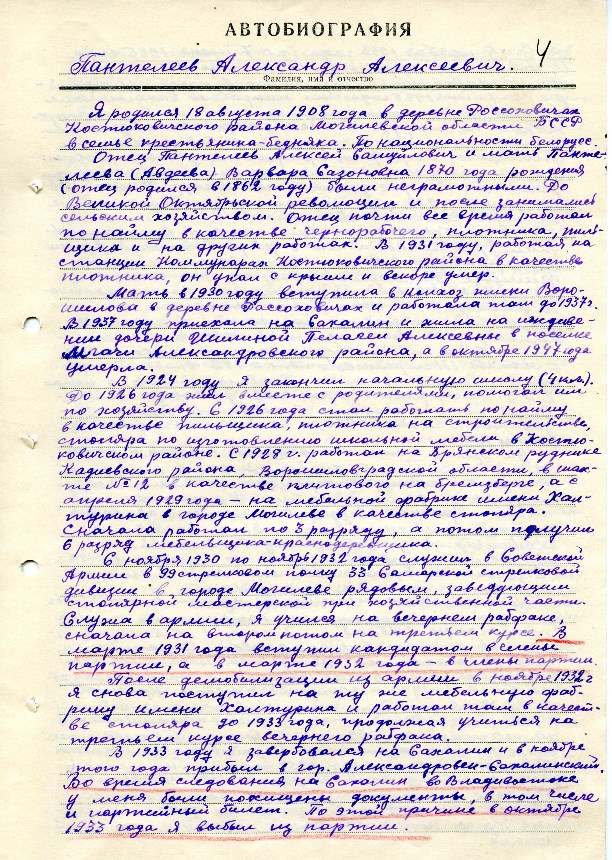 АВТОБИОГРАФИЯ
4
Пантелеев Александр Алексеевич.
Фамилия, имя и отчество
Я родился 18 августа 1908 года в деревне Россоховичах
Костюковичского района Могилевской области БССР
в семье крестьянина-бедняка. По национальности белорус.
Отец Пантелеев Алексей Самуилович и мать Панте-
леева (Авдеева) Варвара Сазоновна 1870 года рождения
(отец родился в 1862 году) были неграмотными. До
Великой Октябрьской революции и после занимались
сельским хозяйством. Отец почти все время работал
по найму в качестве чернорабочего, плотника, пиль-
щика и на других работах. В 1931 году, работая на
станции Коммунарах Костюковичского района в качестве
плотника, он упал с крыши и вскоре умер.
Мать в 1930 году вступила в колхоз имени Воро-
шилова в деревне Рассоховичах и работала там до 1937 г.
В 1937 году приехала на Сахалин и жила на иждиве-
нии дочери Шилиной Пелагеи Алексеевны в поселке
Мгачи Александровского района, а в октябре 1947 года
умерла.
В 1924 году я закончил начальную школу (4 кл.).
До 1926 года жил вместе с родителями, помогал им
по хозяйству. С 1926 года стал работать по найму
в качестве пильщика, плотника на строительстве,
столяра по изготовлению школьной мебели в Костю-
ковичском районе. С 1928 г. работал на Брянском руднике
Кадиевского района, Ворошиловградской области, в шах-
те № 12 в качестве плитового на бремзберге, а с
апреля 1929 года – на мебельной фабрике имени Хал-
турина в городе Могилеве в качестве столяра.
Сначала работал по 3 разряду, а потом получил
6 разряд мебельщика-краснодеревщика.
С ноября 1930 по ноябрь 1932 года служил в Советской
Армии в 99 стрелковом полку 33 Самарской стрелковой
дивизии в городе Могилеве рядовым, заведующим
столярной мастерской при хозяйственной части.
Служа в армии, я учился на вечернем рабфаке,
сначала на втором потом на третьем курсе. В
марте 1931 года вступил кандидатом в члены
партии, а в марте 1932 года – в члены партии.
После демобилизации из армии в ноябре 1932 г
я снова поступил на ту же мебельную фаб-
рику имени Халтурина и работал там в качест-
ве столяра до 1933 года, продолжая учиться на
третьем курсе вечернего рабфака.
В 1933 году я завербовался на Сахалин и в ноябре
того года прибыл в гор. Александровск-Сахалинский.
Во время следования на Сахалин во Владивостоке
у меня были похищены документы, в том числе
и партийный билет. По этой причине в октябре
1933 года я выбыл из партии.